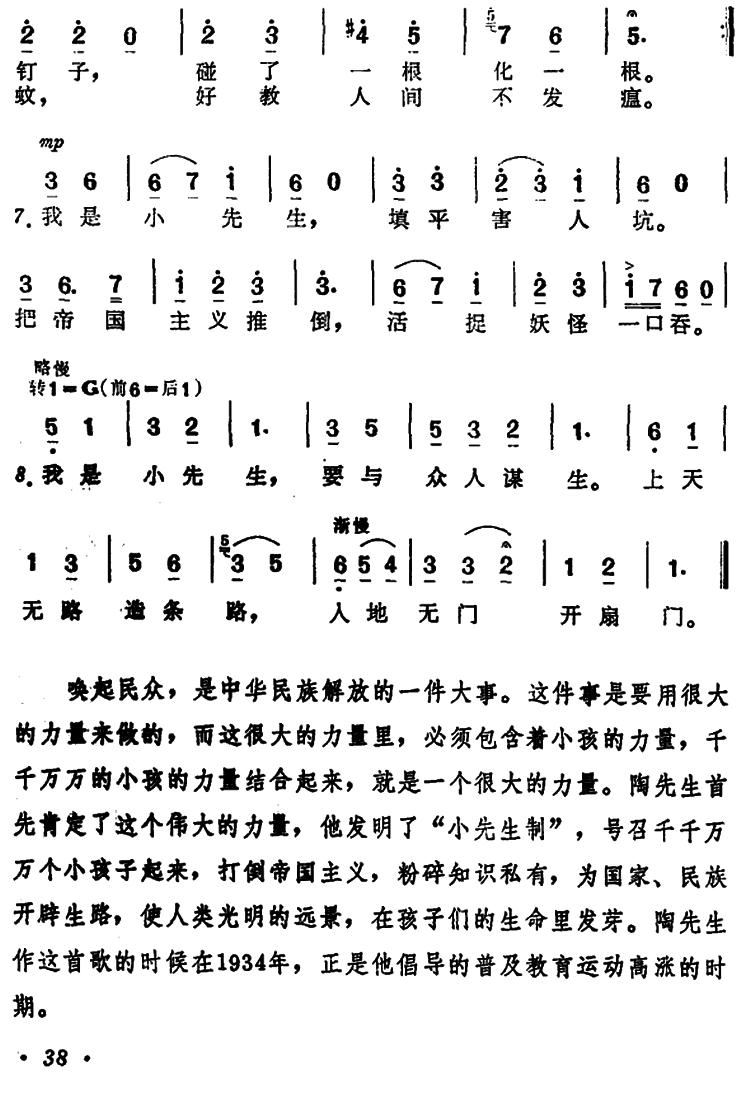 2 2 0 | 2 3 | #4 5 | 5 7 6 | 5. :‖
钉 子， 碰 了 一 根 化 一 根。
蚊， 好 教 人 间 不 发 瘟。
mp
3 6 | 6 7 1 | 6 0 | 3 3 | 2 3 1 | 6 0 |
7.我 是 小 先 生， 填 平 害 人 坑。
3 6. 7 | 1 2 3 | 3. | 6 7 1 | 2 3 | 1 7 6 0 |
把 帝 国 主 义 推 倒， 活 捉 妖 怪 一 口 吞。
略慢
转1=G(前6=后1)
5 1 | 3 2 | 1. | 3 5 | 5 3 2 | 1. | 6 1 |
8.我 是 小 先 生， 要 与 众 人 谋 生。 上 天
渐慢
1 3 | 5 6 | 5 3 5 | 6 5 4 | 3 3 2 | 1 2 | 1. ‖
无 路 造 条 路， 人 地 无 门 开 扇 门。
唤起民众，是中华民族解放的一件大事。这件事是要用很大
的力量来做的，而这很大的力量里，必须包含着小孩的力量，千
千万万的小孩的力量结合起来，就是一个很大的力量。陶先生首
先肯定了这个伟大的力量，他发明了“小先生制”，号召千千万
万个小孩子起来，打倒帝国主义，粉碎知识私有，为国家、民族
开辟生路，使人类光明的远景，在孩子们的生命里发芽。陶先生
作这首歌的时候在1934年，正是他倡导的普及教育运动高涨的时
期。
• 38 •